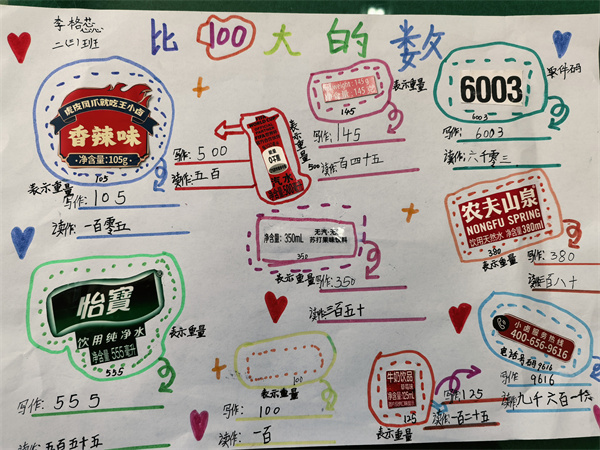 李格蕊
二(三)班
比100大的数
虎皮凤爪就吃王小卤
香辣味
净含量:105g
105
表示重量
写作: 105
读作: 一百零五
汽水
500
表示重量
写作: 500
读作: 五百
Weight: 145 g
净含量: 145 克
145
表示重量
写作: 145
读作: 一百四十五
6003
6003
取件码
写作: 6003
读作: 六千零三
净含量: 350mL
无汽·无
苏打果味饮料
350
表示重量
写作: 350
读作: 三百五十
农夫山泉
NONGFU SPRING
饮用天然水 净含量380ml
380
表示重量
写作: 380
读作: 三百八十
怡寶
饮用纯净水
净含量 555毫升
555
表示重量
写作: 555
读作: 五百五十五
100
表示重量
写作: 100
读作: 一百
牛奶饮品
草莓味
125
表示重量
写作: 125
读作: 一百二十五
小卤服务热线
400-656-9616
电话号码9616
写作: 9616
读作: 九千六百一十六